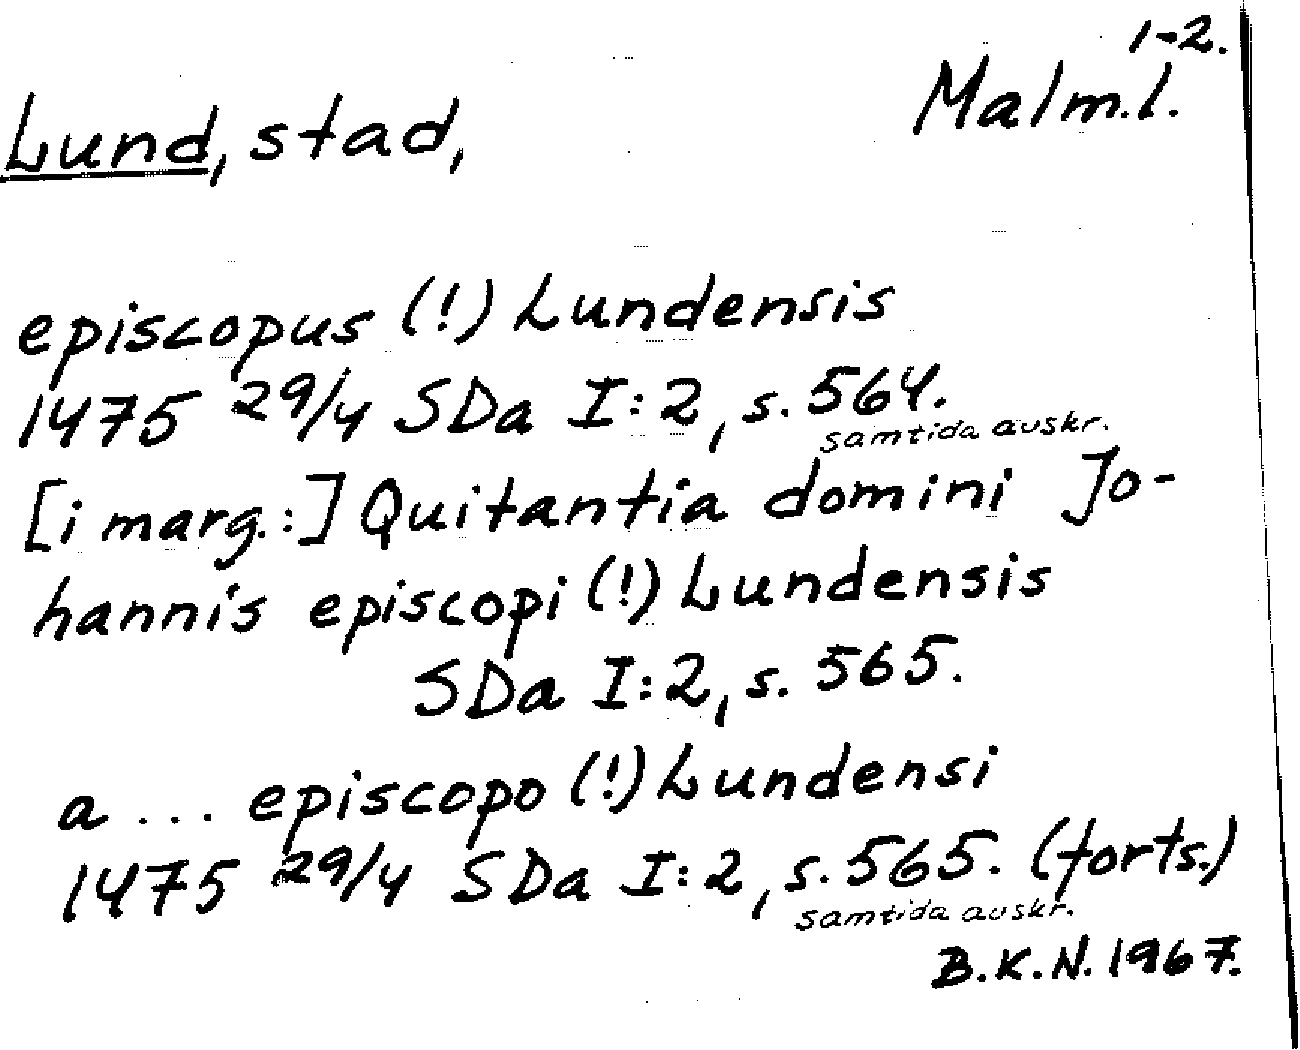 1-2.
Lund, stad, Malm.l.
episcopus (!) Lundensis
1475 29/4 SDa I:2, s. 564.
samtida avskr.
[i marg.:] Quitantia domini Jo-
hannis episcopi (!) Lundensis
SDa I:2, s. 565.
a ... episcopo (!) Lundensi
1475 29/4 SDa I:2, s. 565. (forts.)
samtida avskr.
B.K.N. 1967.